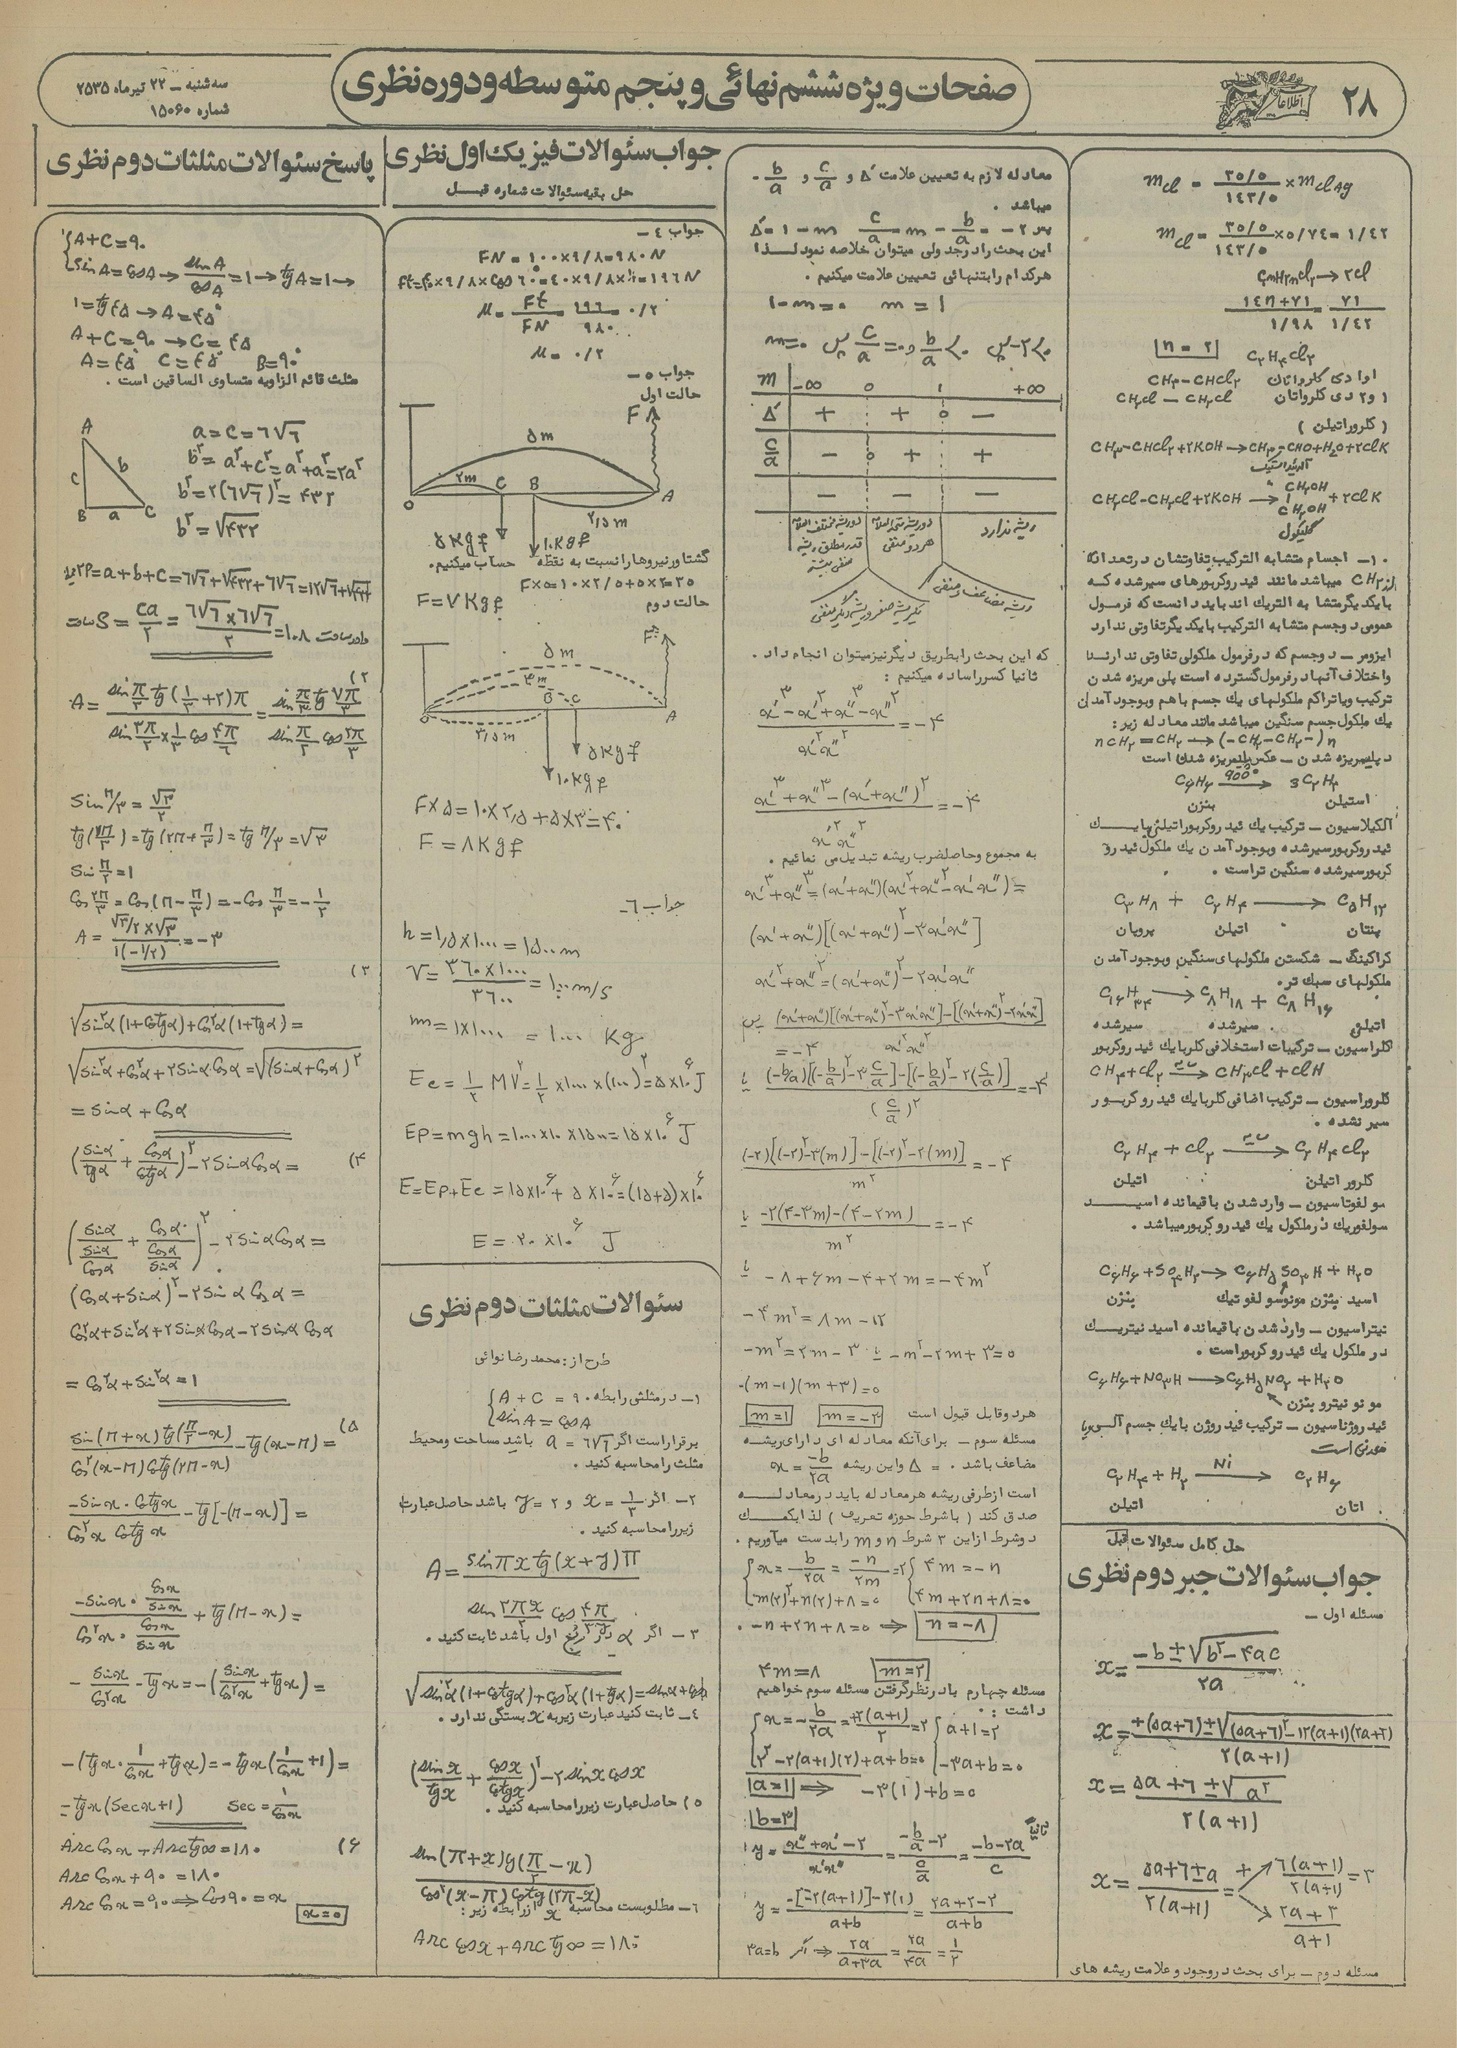 ۲۸
اطلاعات
صفحات ویژه ششم نهائی و پنجم متوسطه و دوره نظری
سه شنبه ـ ۲۲ تیرماه ۲۵۳۵
شماره ۱۵۰۶۰
mcl = ۳۵/۵ / ۱۴۳/۵ × mclAg
mcl = ۳۵/۵ / ۱۴۳/۵ × ۵/۷۴ = ۱/۴۲
CnH۲ncl۲ → ۲cl
۱۴n+۷۱ / ۱/۹۸ = ۷۱ / ۱/۴۲
n = ۲
C۲H۴Cl۲
۱و۱ دی کلرواتان CH۳-CHCl۲
۱ و ۲ دی کلرواتان CH۲Cl – CH۲Cl
( کلروراتیلن )
CH۳-CHCl۲+۲KOH → CH۳-CHO+H۲O+۲ClK
آلدئید استیک
CH۲Cl-CH۲Cl+۲KOH → CH۲OH - CH۲OH +۲ClK
گلیکول
۱۰ـ اجسام متشابه الترکیب تفاوتشان در تعداد
از CH۲ میباشد مانند ئیدروکربورهای سیرشده که
بایکدیگر متشابه الترکیب اند باید دانست که فرمول
عمومی دو جسم متشابه الترکیب بایکدیگر تفاوتی ندارد
ایزومر ـ دو جسم که در فرمول ملکولی تفاوتی ندارند
و اختلاف آنها در فرمول گسترده است پلی مریزه شدن
ترکیب و یا تراکم ملکولهای یك جسم باهم و بوجود آمدن
یك ملکول جسم سنگین میباشد مانند معادله زیر :
nCH۲ = CH۲ → (-CH۲-CH۲-)n
دپلیمریزه شدن ـ عکس پلیمریزه شدن است
C۶H۶ 900° → 3C۲H۲
بنزن استیلن
آلکیلاسیون ـ ترکیب یك ئیدروکربوراتیلنی بایك
ئیدروکربور سیرشده و بوجود آمدن یك ملکول ئیدرو
کربور سیرشده سنگین تر است .
C۳H۸ + C۲H۴ → C۵H۱۲
پروپان اتیلن پنتان
کراکینگ ـ شکستن ملکولهای سنگین و بوجود آمدن
ملکولهای سبك تر .
C۱۶H۳۴ → C۸H۱۸ + C۸H۱۶
سیرشده سیرشده اتیلنی
کلراسیون ـ ترکیبات استخلافی کلر بایك ئیدروکربور
CH۴+Cl۲ → CH۳Cl + ClH
کلروراسیون ـ ترکیب اضافی کلر بایك ئیدروکربور
سیر نشده .
C۲H۴ + Cl۲ → C۲H۴Cl۲
اتیلن کلرور اتیلن
سولفوناسیون ـ وارد شدن باقیمانده اسید
سولفوریك در ملکول یك ئیدروکربور میباشد .
C۶H۶ + SO۴H۲ → C۶H۵SO۳H + H۲O
بنزن اسید بنزن مونوسولفونیك
نیتراسیون ـ وارد شدن باقیمانده اسید نیتریك
در ملکول یك ئیدروکربور است .
C۶H۶ + NO۳H → C۶H۵NO۲ + H۲O
مونو نیترو بنزن
ئیدروژناسیون ـ ترکیب ئیدروژن بایك جسم آلی یا
معدنی است
C۲H۴ + H۲ Ni → C۲H۶
اتیلن اتان
حل کامل سئوالات قبل
جواب سئوالات جبر دوم نظری
مسئله اول ـ
x = -b ± √b۲ – ۴ac / ۲a
x = +(۵a+۶) ± √(۵a+۶)۲ – ۱۲(a+۱)(۲a+۳) / ۲(a+۱)
x = ۵a+۶ ± √a۲ / ۲(a+۱)
x = ۵a+۶ ± a / ۲(a+۱) = + ↗ ۶(a+۱) / ۲(a+۱) = ۳
- ↘ ۲a+۳ / a+۱
مسئله دوم ـ برای بحث در وجود و علامت ریشه های
معادله لازم به تعیین علامت Δ' و c/a و -b/a
میباشد .
Δ' = ۱ – m c/a = m – b/a = –۲
این بحث را در جدولی میتوان خلاصه نمود لذا
هرکدام را بتنهائی تعیین علامت میکنیم .
۱–m = ۰ m = ۱
m –∞ ۰ ۱ +∞
Δ' + + ۰ –
c/a – ۰ + +
– – –
ریشه ندارد
که این بحث را بطریق دیگر نیز میتوان انجام داد .
ثانیا کسر را ساده میکنیم :
x'۳ – x'۲ + x''۳ – x''۲ / x'۲ x''۲ = –۴
x'۳ + x''۳ – (x'۲ + x''۲) / x'۲ x''۲ = –۴
به مجموع و حاصلضرب ریشه تبدیل می نمائیم .
x'۳ + x''۳ = (x' + x'')(x'۲ + x''۲ – x'x'') =
(x' + x'')[(x' + x'')۲ – ۳x'x'']
x'۲ + x''۲ = (x' + x'')۲ – ۲x'x''
پس (x'+x'')[(x'+x'')۲–۳x'x'']–[(x'+x'')۲–۲x'x''] / x'۲x''۲ = –۴
یا (–b/a)[(–b/a)۲–۳c/a]–[(–b/a)۲–۲(c/a)] / (c/a)۲ = –۴
(–۲)[(–۲)۲–۳(m)]–[(–۲)۲–۲(m)] / m۲ = –۴
یا –۲(۴–۳m)–(۴–۲m) / m۲ = –۴
یا –۸+۶m–۴+۲m = –۴m۲
–۴m۲ = ۸m–۱۲
–m۲ = ۲m–۳ یا –m۲–۲m+۳=۰
–(m–۱)(m+۳)=۰
هر دو قابل قبول است m=–۳ m=۱
مسئله سوم ـ برای آنکه معادله ای دارای ریشه
مضاعف باشد Δ = ۰ و این ریشه x = –b/۲a
است از طرفی ریشه هر معادله باید در معادله
صدق کند ( باشرط حوزه تعریف ) لذا بکمك
دو شرط از این ۳ شرط n و m را بدست میآوریم .
x = –b/۲a = –n/۲m = ۲ ۴m = –n
m(۲)۲ + n(۲) + ۸ = ۰ ۴m + ۲n + ۸ = ۰
–n + ۲n + ۸ = ۰ ⇒ n = –۸
۴m = ۸ m = ۲
مسئله چهارم با در نظر گرفتن مسئله سوم خواهیم
داشت :
x = –b/۲a = +۲(a+۱)/۲ = ۲ a+۱=۲
۲۲–۲(a+۱)(۲)+a+b=۰ –۳a+b=۰
a=۱ ⇒ –۳(۱)+b=۰
b=۳
ثانیاً y = x''+x'–۲ / x'x'' = –b/a –۲ / c/a = –b–۲a / c
y = –[–۲(a+۱)]–۲(۱) / a+b = ۲a+۲–۲ / a+b
۳a=b اگر ⇒ ۲a / a+۳a = ۲a / ۴a = ۱/۲
جواب سئوالات فیزیك اول نظری
حل بقیه سئوالات شماره قبل
جواب ٤ ـ
FN = ۱۰۰×۹/۸=۹۸۰ N
Ft=۴۰×۹/۸×cos ۶۰=٤۰×۹/۸×½=۱۹٦ N
M = Ft / FN = ۱۹٦ / ۹۸۰ = ۰/۲
M = ۰/۲
جواب ۵ ـ
حالت اول
F
۵m
۲m C B A
O
۲/۵ m
۵Kgf
۱۰Kgf
گشتاور نیروها را نسبت به نقطه حساب میکنیم .
F×۵=۱۰×۲/۵+۵×۲=۳۵
F = ۷Kgf
حالت دوم
۵m
۳m
B C A
O
۲/۵m
۵Kgf
۱۰Kgf
F×۵=۱۰×۲/۵+۵×۳=۴۰
F=۸Kgf
جواب ٦ ـ
h = ۱/۵×۱۰۰۰ = ۱۵۰۰ m
V = ۳٦۰×۱۰۰۰ / ۳٦۰۰ = ۱۰۰ m/s
m = ۱×۱۰۰۰ = ۱۰۰۰ Kg
Ec = ½ MV۲ = ½×۱۰۰۰×(۱۰۰)۲ = ۵×۱۰۶ J
Ep = mgh = ۱۰۰۰×۱۰×۱۵۰۰ = ۱۵×۱۰۶ J
E = Ep+Ec = ۱۵×۱۰۶ + ۵×۱۰۶ = (۱۵+۵)×۱۰۶
E = ۲۰×۱۰۶ J
سئوالات مثلثات دوم نظری
طرح از : محمد رضا نوائی
۱ـ در مثلثی رابطه A + C = ۹۰
sin A = cos A
برقرار است اگر a = ٦√٦ باشد مساحت و محیط
مثلث را محاسبه کنید .
۲ـ اگر x = ۱/۳ و y = ۲ باشد حاصل عبارت
زیر را محاسبه کنید .
A = sin πx tg(x+y)π
۳ـ اگر α در ربع اول باشد ثابت کنید .
√sin۲α(۱+cotgα)+cos۲α(۱+tgα) = sinα+cosα
٤ـ ثابت کنید عبارت زیر به x بستگی ندارد .
(sin x / tg x + cos x / cotg x)۲ – ۲ sin x cos x
۵) حاصل عبارت زیر را محاسبه کنید .
sin(π+x)tg(π/۲–x) / cos۲(x–π) cotg(۲π–x)
٦ـ مطلوبست محاسبه x از رابطه زیر :
Arc cos x + Arc tg ∞ = ۱۸۰
پاسخ سئوالات مثلثات دوم نظری
A+C=۹۰
sin A = cos A → sin A / cos A = ۱ → tg A = ۱ →
۱ = tg ۴۵ → A = ۴۵°
A + C = ۹۰ → C = ٤۵
A = ٤۵° C = ٤۵° B=۹۰°
مثلث قائم الزاویه متساوی الساقین است .
A
c b
B a C
a = c = ٦√٦
b۲ = a۲+c۲ = a۲+a۲ = ۲a۲
b۲ = ۲(٦√٦)۲ = ۴۳۲
b۲ = √۴۳۲
۲P = a+b+c = ٦√٦+√۴۳۲+٦√٦ = ۱۲√٦+√۴۳۲
S = ca/۲ = ٦√٦×٦√٦ / ۲ = ۱۰۸
۲)
sin π/۳ = √۳/۲
tg(۷π/۳) = tg(۲π+π/۳) = tg π/۳ = √۳
sin π/۲ = ۱
cos ۲π/۳ = cos(π–π/۳) = –cos π/۳ = –۱/۲
A = √۳/۲×√۳ / ۱(–۱/۲) = –۳
۳)
√sin۲α(۱+cotgα)+cos۲α(۱+tgα) =
√sin۲α+cos۲α+۲sinα cosα = √(sinα+cosα)۲
= sinα + cosα
۴) (sinα/tgα + cosα/cotgα)۲ –۲sinα cosα =
(sinα / sinα/cosα + cosα / cosα/sinα)۲ – ۲sinα cosα =
(cosα+sinα)۲–۲sinα cosα =
cos۲α+sin۲α+۲sinα cosα–۲sinα cosα
= cos۲α+sin۲α = ۱
۵) sin(π+x)tg(π/۲–x) / cos۲(x–π)cotg(۲π–x) – tg(x–π) =
–sin x . cotg x / cos۲x cotg x – tg[–(π–x)] =
–sin x . cos x/sin x / cos۲x . cos x/sin x + tg(π–x) =
–sin x/cos۲x – tg x = –(sin x/cos۲x + tg x) =
–(tg x . ۱/cos x + tg x) = –tg x(۱/cos x + ۱) =
–tg x(sec x+۱) sec = ۱/cos x
۶) Arc cos x + Arc tg ∞ = ۱۸۰
Arc cos x + ۹۰ = ۱۸۰
Arc cos x = ۹۰ ⇒ cos ۹۰ = x
x=۰